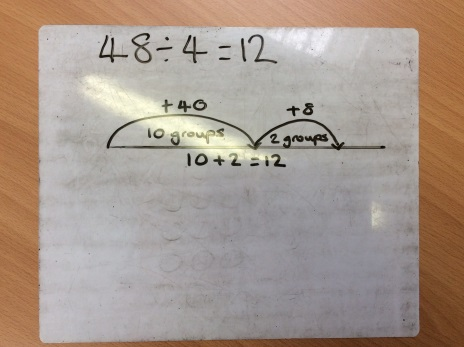 48÷4=12
+40 +8
10 groups 2 groups
10+2=12